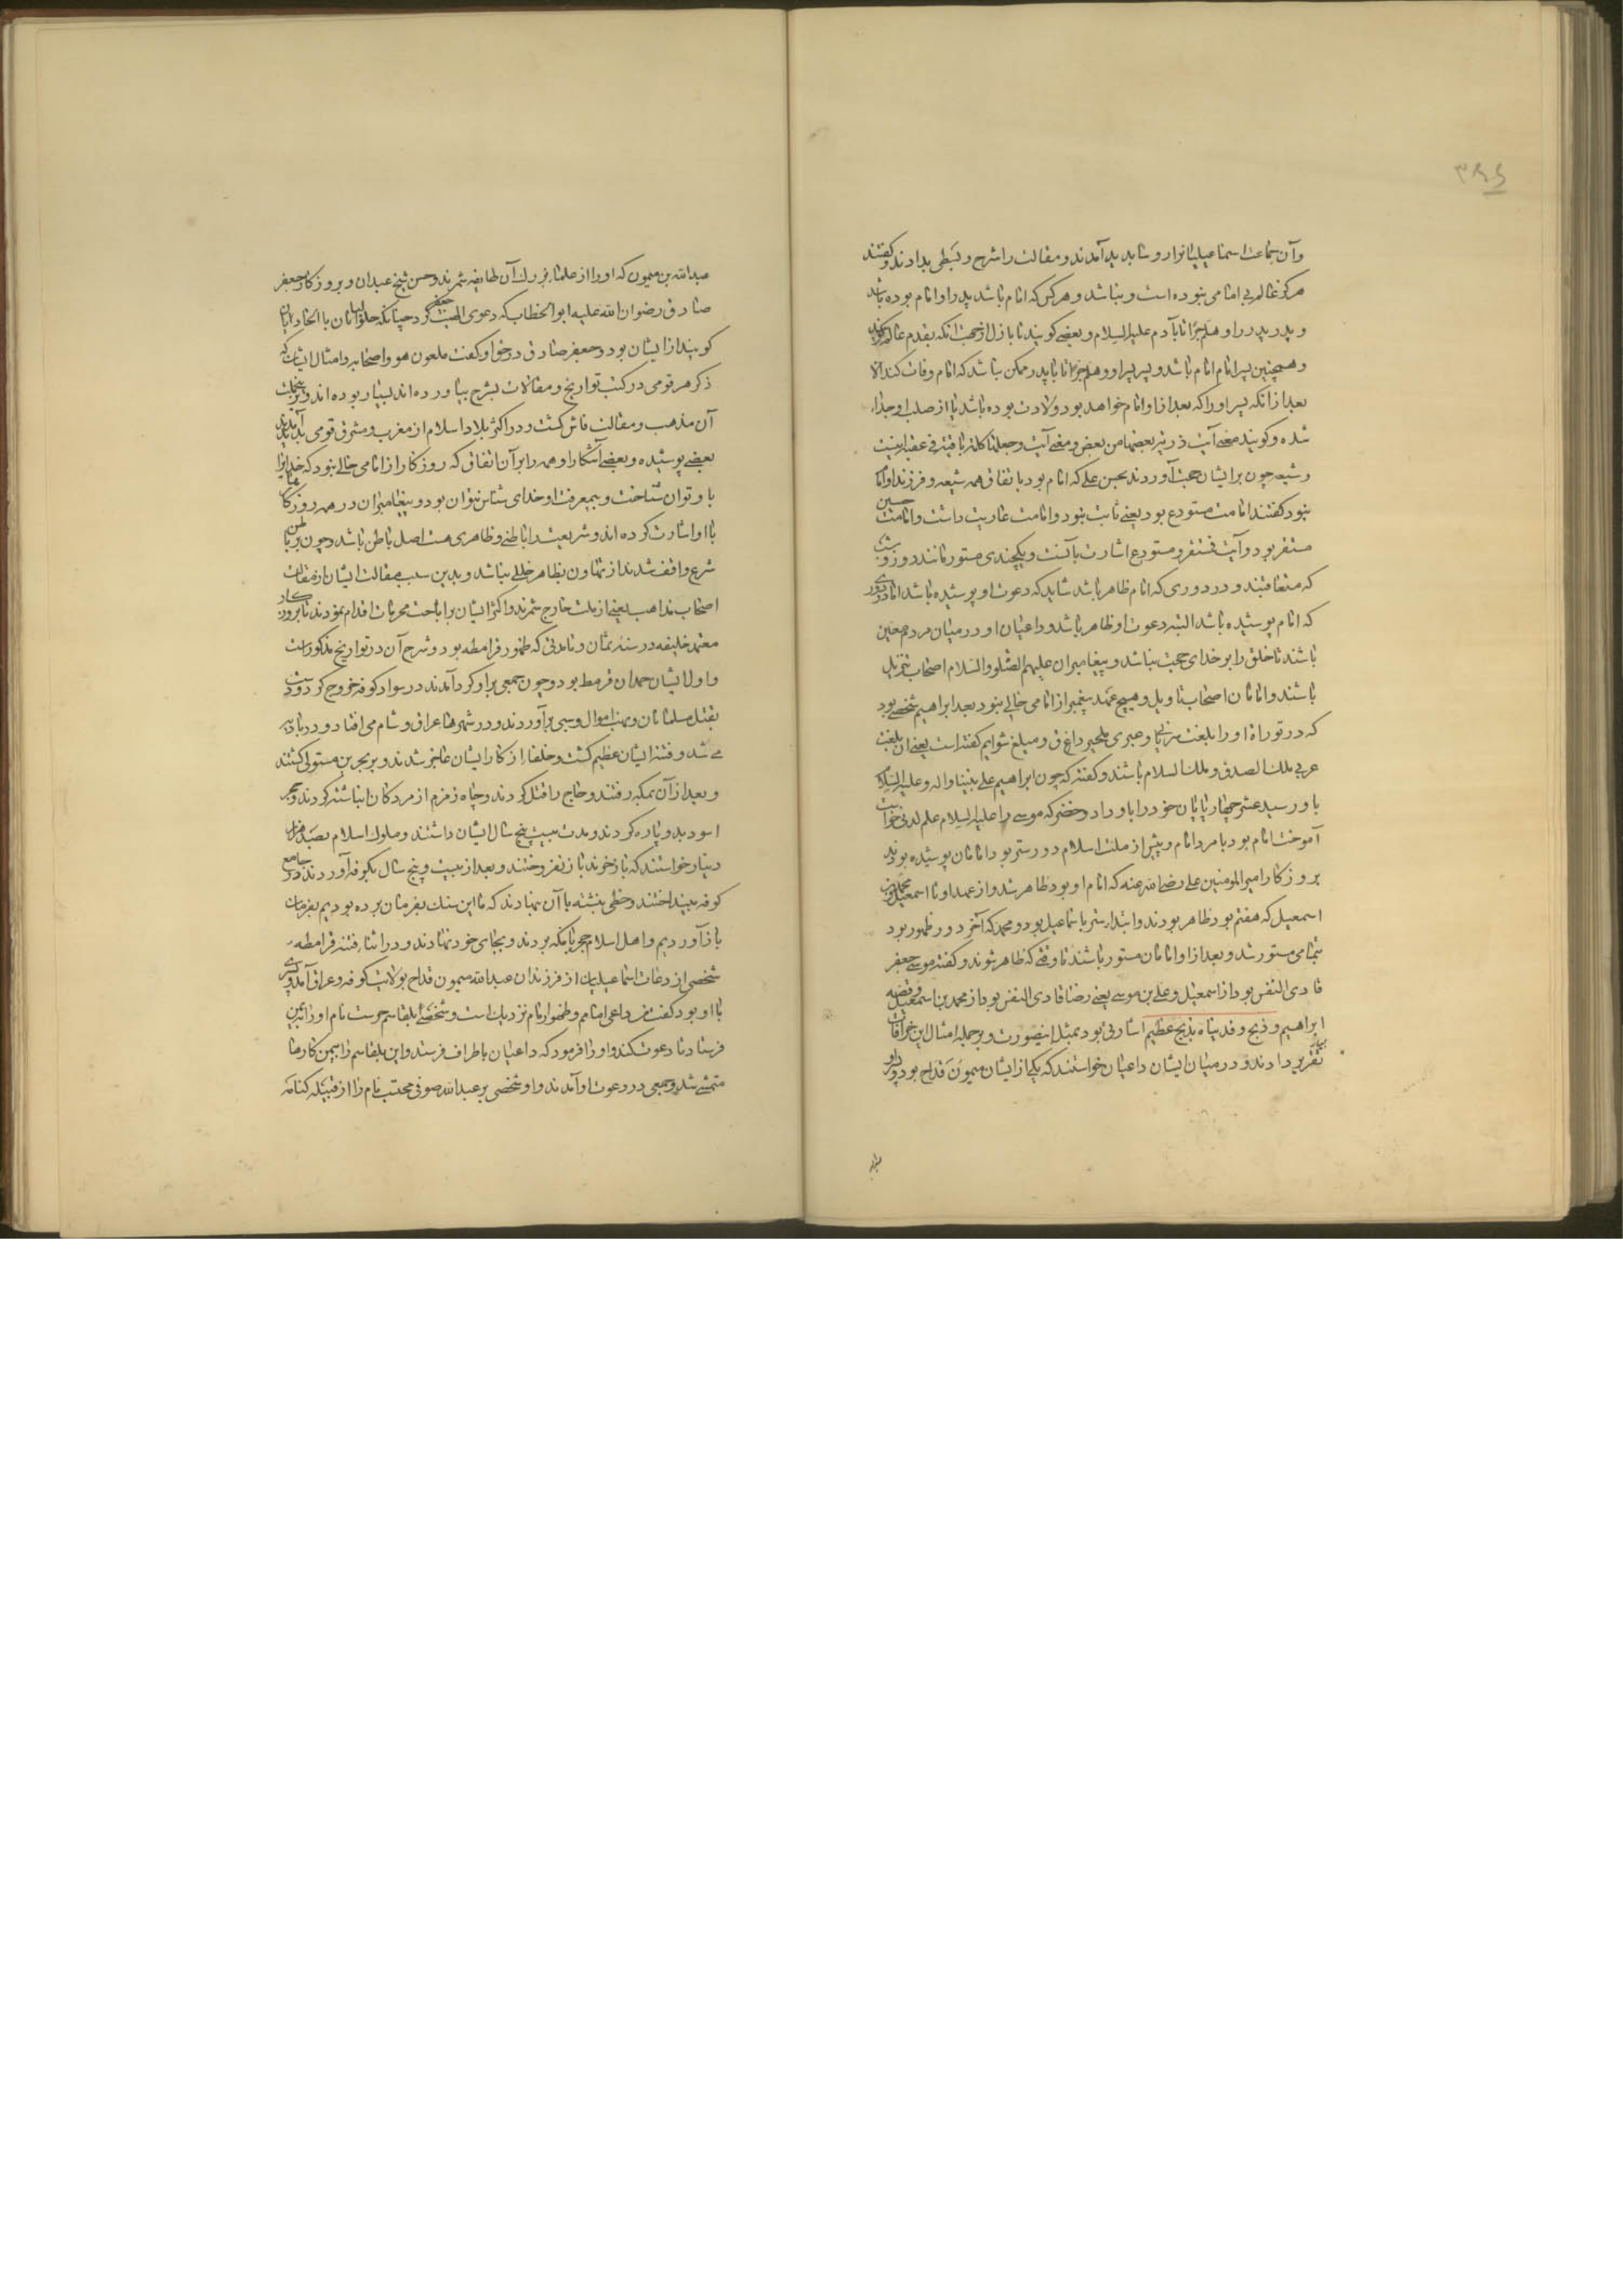 ۳۴۶
و آن جماعت اسماعیلیانرا روسا پدید آمدند و مقالت را شرح و بسطی بدادند و گفتند
هرگز عالم بی امامی نبوده است و نباشد و هر کس که امام باشد پدر او امام بوده باشد
و پدر پدر او هلم جرّا تا بآدم علیه السلام و بعضی گویند تا بازل از جهت آنکه بقدم عالم گویند
و همچنین پسر امام امام باشد و پسر پسر او و هلم جرّا تا بابد و ممکن نباشد که امام وفات کند الا
بعد از آنکه پسر او را که بعد از او امام خواهد بود ولادت بوده باشد یا از صلب او جدا
شده و گویند معنی آیت ذریه بعضها من بعض و معنی آیت و جعلها کلمة باقیة فی عقبه اینست
و شیعه چون بر ایشان حجت آوردند بحسن علی که امام بود باتفاق همه شیعه و فرزند او امام
نبود گفتند امامت مستودع بود یعنی ثابت نبود و امامت عاریت داشت و امامت حسین
مستقر بود و آیت فمستقر و مستودع اشارت بآنست و یکچندی مستور مانند روز و شب
که متعاقبند و در دوری که امام ظاهر باشد شاید که دعوت او پوشیده باشد اما در دوری
که امام پوشیده باشد البته دعوت او ظاهر باشد و داعیان او در میان مردم معین
باشند تا خلق را بر خدای حجت نباشد و پیغامبران علیهم الصلو والسلام اصحاب تنزیل
باشند و امامان اصحاب تاویل و هیچ عهد پیغمبر از امامی خالی نبود بعهد ابراهیم شخصی بود
که در توراة او را بلغت سریانی و عبری ملخیزداغ ق و مبلغ شوایم گفته است یعنی ان بلغت
عربی ملک الصدق و ملک السلام باشند و گفته که چون ابراهیم علی نبینا و اله و علیه السلام
باو رسید عشر چهارپایان خود را باو داد و خضر که موسی را علیه السلام علم لدنی خواست
آموخت امام بود یا مرد امام و پیش از ملت اسلام دور ستر بود امامان پوشیده بودند
بروزگار امیرالمومنین علی رضی الله عنه که امام او بود ظاهر شد و از عهد او تا اسمعیل و محمد بن
اسمعیل که هفتم بود ظاهر بودند و ابتداء ستر باسماعیل بود و محمد که آخر دور ظهور بود
بتمامی مستور شد و بعد از او امامان مستور باشند تا وقتی که ظاهر شوند و گفته موسی جعفر
فادی النفس بود از اسمعیل و علی بن موسی یعنی رضا فادی النفس بود از محمد بن اسمعیل و قضیه
ابراهیم و ذبح و فدیناه بذبح عظیم اشارتی بود بمثل اینصورت و بر جمله امثال این خرافات
تقریر دادند و در میان ایشان داعیان خواستند که یکی از ایشان میمون قداح بود و پسر او
عبدالله بن میمون که او را از علماء بزرگ آن طایفه شمرند و حسن شیخ عبدان و بروزگار جعفر
صادق رضوان الله علیه ابو الخطاب که دعوی الهیت جعفر کرد چنانکه حلولیان با اتحادیان
گویند از ایشان بود و جعفر صادق در حق او گفت ملعون هو و اصحابه و امثال ایشان که
ذکر هر قومی در کتب تواریخ و مقالات بشرح بیاورده اند بسیار بوده اند و بر جملت
آن مذهب و مقالت فاش گشت و در اکثر بلاد اسلام از مغرب و مشرق قومی پدید آمدند
بعضی پوشیده و بعضی آشکارا و همه را بر آن اتفاق که روزگار از امامی خالی نبود که خدایرا
باو توان شناخت و بیمعرفت او خدای شناس نتوان بود و پیغامبران در همه روزگارها
باو اشارت کرده اند و شریعت را باطنی و ظاهری هست اصل باطن باشد و چون بر باطن
شرع واقف شدند از تهاون بظاهر خللی نباشد و بدین سبب مقالت ایشان از مقالت
اصحاب مذاهب یعنی از ملت خارج شمرند و اکثر ایشان بر اباحت محرمات اقدام نمودند تا بروزگار
معتمد خلیفه در سنه ثمان و مایتی که ظهور قرامطه بود و شرح آن در تواریخ مذکور است
و اول ایشان حمدان قرمط بود و چون جمعی برو گرد آمدند در سواد کوفه خروج کرد و دست
بقتل مسلمانان و نهب اموال و سبی برآوردند و در شهرهاء عراق و شام می افتاد و در بادیه
می شد و فتنه ایشان عظیم گشت و خلفا از کار ایشان عاجز شدند و بر بحرین مستولی گشتند
و بعد از آن بمکه رفتند و حاج را قتل کردند و چاه زمزم از مردگان انباشته کردند و حجر
اسود بدو پاره کردند و مدت بیست پنج سال ایشان داشتند و ملوک اسلام بصد هزار
دینار خواستند که باز خرند باز نفروختند و بعد از بیست و پنج سال بکوفه آوردند و در جامع
کوفه بینداختند و خطی نبشته با آن بنهادند که ما این سنک بفرمان برده بودیم بفرمان
باز آوردیم و اهل اسلام حجر با مکه بردند و بجای خود نهادند و در اثناء فتنه قرامطه
شخصی از دعات اسماعیلیان از فرزندان عبدالله میمون قداح بولایت کوفه و عراق آمد و پسری
با او بود گفت من داعی امامم و ظهور امام نزدیک است و شخصی بلقاسم حرست نام او را بیمن
فرستاد تا دعوت کند و او را فرمود که داعیان باطراف فرستد و این بلقاسم را بیمن کارها
متمشی شد و جمعی در دعوت او آمدند و او شخصی بو عبدالله صوفی محتسب نام را از قبیله کتامه